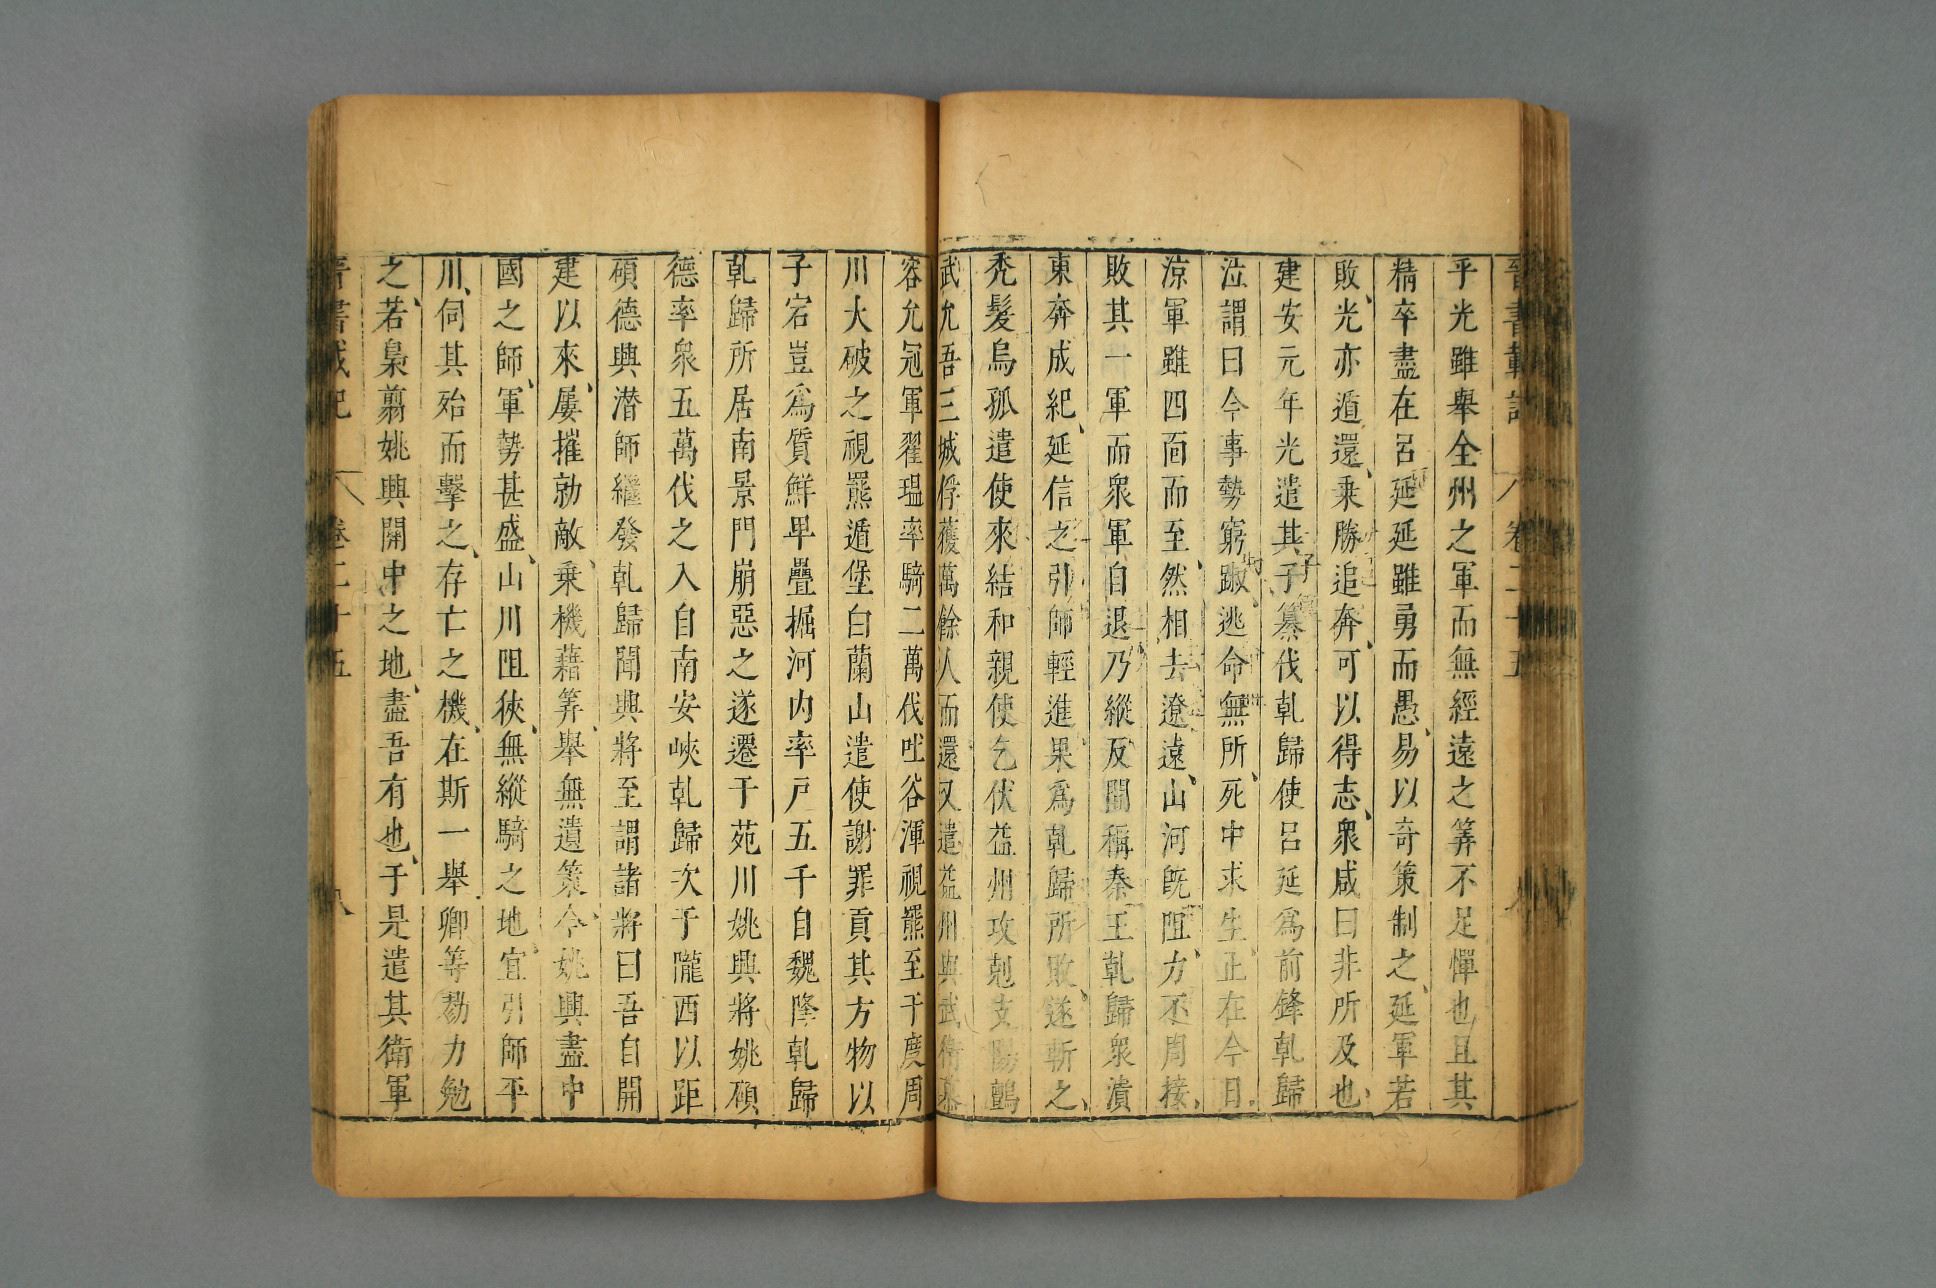 晉書載記 卷二十五 八
乎光雖舉全州之軍而無經遠之筭不足憚也且其
精卒盡在呂延延雖勇而愚、易以奇策制之、延軍若
敗、光亦遁還、乗勝追奔、可以得志、衆咸曰非所及也、
建安元年光遣其子纂伐乹歸使呂延爲前鋒乹歸
泣謂曰今事勢窮踧、逃命無所、死中求生、正在今日、
涼軍雖四面而至、然相去遼遠、山河旣阻、力不周接、
敗其一軍而衆軍自退乃縱反間稱秦王乹歸衆潰
東奔成紀、延信之引師輕進、果爲乹歸所敗、遂斬之、
秃髮烏孤遣使來結和親使乞伏益州攻剋支陽鸇
武允吾三城俘獲萬餘人而還又遣益州與武衛慕
容允冠軍翟瑥率騎二萬伐吐谷渾視羆至于度周
川大破之視羆遁堡白蘭山遣使謝罪貢其方物以
子宕豈爲質鮮卑疊掘河内率戸五千自魏降乹歸
乹歸所居南景門崩惡之遂遷于苑川姚興將姚碩
德率衆五萬伐之入自南安峽乹歸次于隴西以距
碩德興潜師繼發乹歸聞興將至謂諸將曰吾自開
建以來、屢摧勍敵、乗機藉筭、舉無遺策、今姚興盡中
國之師、軍勢甚盛、山川阻狹、無縱騎之地、宜引師平
川、伺其殆而擊之、存亡之機、在斯一舉、卿等勠力勉
之、若梟翦姚興關中之地、盡吾有也、于是遣其衛軍
晉書載記 卷二十五 八